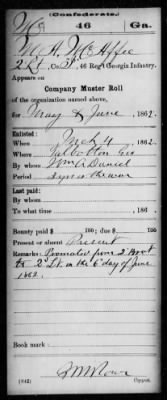 (Confederate.)
Mc 46 Ga.
M. H. McAffee
2 Lt, Co. , 46 Reg't Georgia Infantry.
Appears on
Company Muster Roll
of the organization named above,
for May & June, 1862.
Enlisted:
When Mch 4, 1862.
Where Talbotton Geo
By whom Wm A Daniel
Period 3 yrs or the war
Last paid:
By whom
To what time , 186 .
Bounty paid $ 100; due $ 100
Present or absent Present
Remarks: Promoted from 2d Brevt
to 2d Lt. on the 6 day of June
1862.
Book mark:
(642) Copyist.